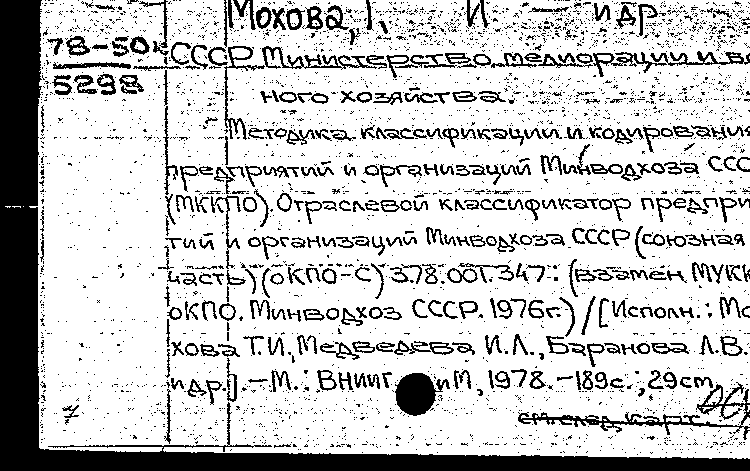 Мохова, Т. И. и др
78-50
5298
СССР Министерство мелиорации и во
ного хозяйства.
Методика классификации и кодирования
предприятий и организаций Минводхоза ССС
(МККПО). Отраслевой классификатор предпри
тий и организаций Минводхоза СССР (союзная
часть) (ОКПО-С) 3.78.001.347: (взамен МУКК
ОКПО. Минводхоз СССР. 1976г.) / [Исполн.: Мо
хова Т.И., Медведева И.Л., Баранова Л.В.
и др.]. - М.: ВНИИГ и М, 1978. - 189с.; 29см.
см. след. карт.